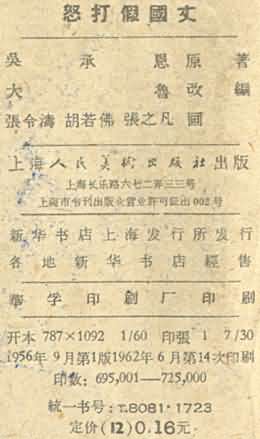 怒打假國丈
吳承恩原著
大魯改編
張令濤 胡若佛 張之凡 圖
上海人民美術出版社出版
上海长乐路六七二弄三三号
上海市书刊出版业营业许可証出002号
新华书店上海发行所发行
各地新华书店經售
華学印刷厂印刷
开本 787×1092 1/60 印張 1 7/30
1956年9月第1版1962年6月第14次印刷
印数: 695,001—725,000
統一书号: T.8081·1723
定价(12)0.16元